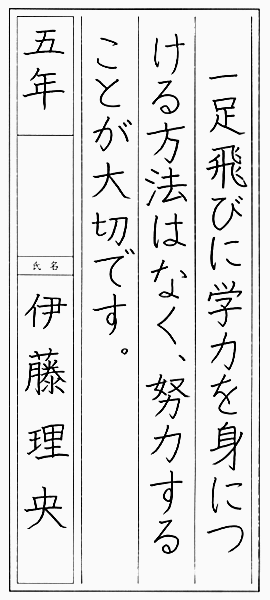 一足飛びに学力を身につ
ける方法はなく、努力する
ことが大切です。
五年
氏名
伊藤理央